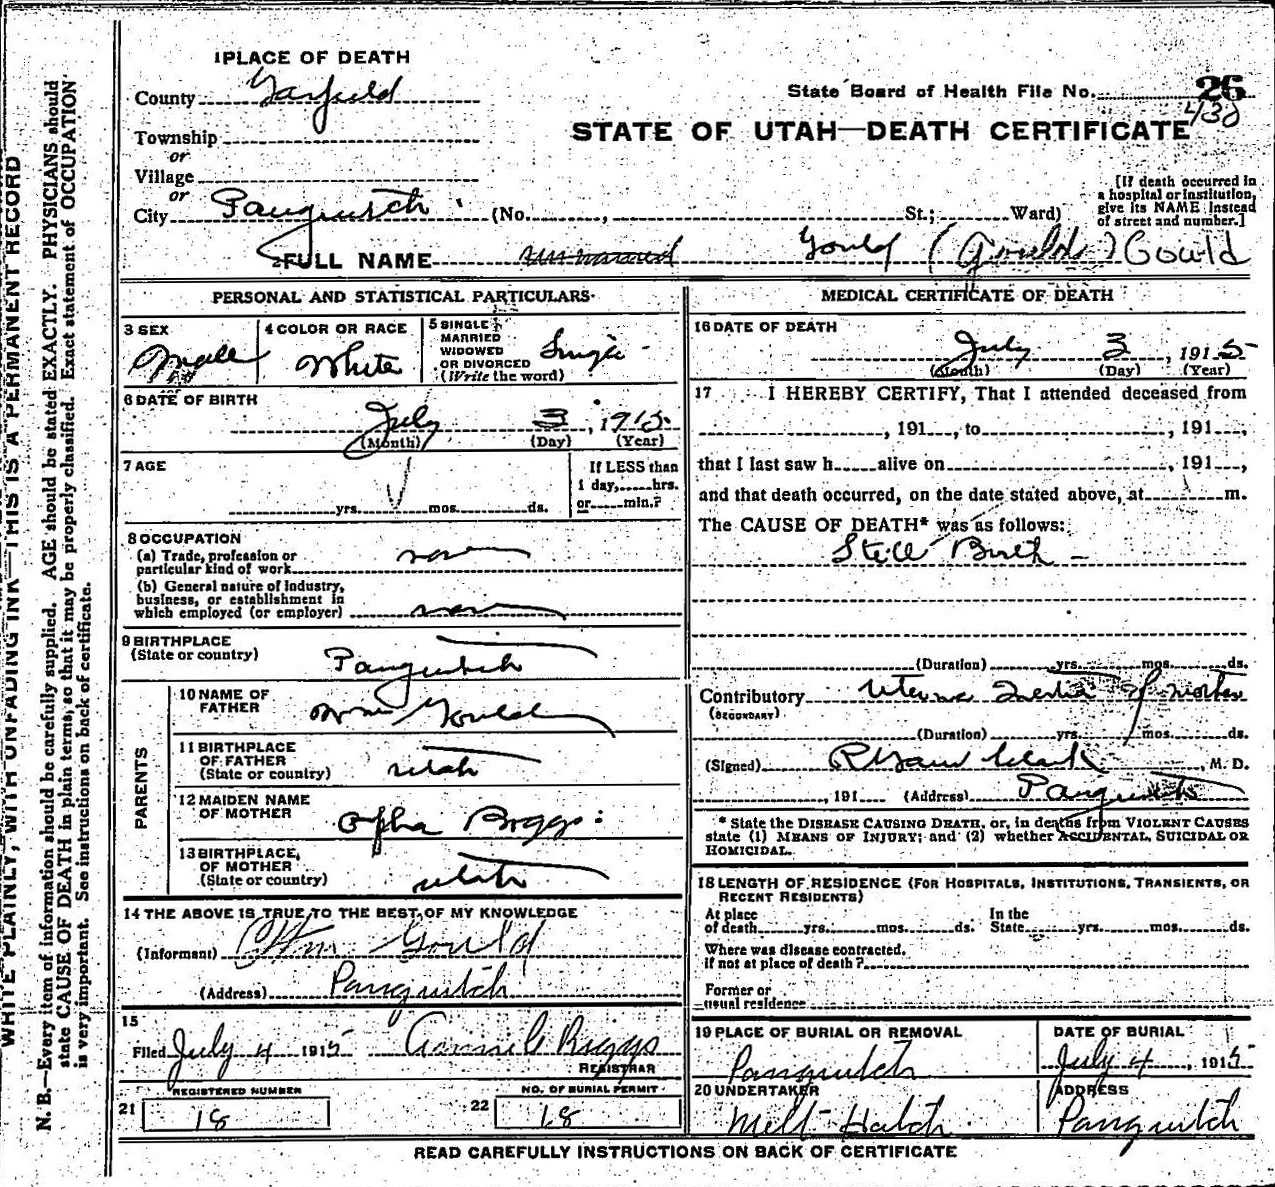 WRITE PLAINLY, WITH UNFADING INK—THIS IS A PERMANENT RECORD
N. B.—Every item of information should be carefully supplied. AGE should be stated EXACTLY. PHYSICIANS should
state CAUSE OF DEATH in plain terms, so that it may be properly classified. Exact statement of OCCUPATION
is very important. See instructions on back of certificate.
1 PLACE OF DEATH
County Garfield
State Board of Health File No. 26
430
Township
STATE OF UTAH—DEATH CERTIFICATE
or
Village
or
City Panguitch (No. , St.; Ward)
[If death occurred in
a hospital or institution,
give its NAME instead
of street and number.]
2 FULL NAME unnamed Gould (Goulds) Gould
PERSONAL AND STATISTICAL PARTICULARS
3 SEX
Male
4 COLOR OR RACE
White
5 SINGLE
MARRIED
WIDOWED
OR DIVORCED
(Write the word)
Single
6 DATE OF BIRTH
July 3, 1915
(Month) (Day) (Year)
7 AGE
yrs. mos. ds.
If LESS than
1 day, hrs.
or min.?
8 OCCUPATION
(a) Trade, profession or
particular kind of work none
(b) General nature of industry,
business, or establishment in
which employed (or employer) none
9 BIRTHPLACE
(State or country) Panguitch
PARENTS
10 NAME OF
FATHER Wm Gould
11 BIRTHPLACE
OF FATHER
(State or country) Utah
12 MAIDEN NAME
OF MOTHER Orpha Briggs
13 BIRTHPLACE,
OF MOTHER
(State or country) Utah
14 THE ABOVE IS TRUE TO THE BEST OF MY KNOWLEDGE
(Informant) Wm Gould
(Address) Panguitch
15
Filed July 4 1915 Briggs
REGISTRAR
REGISTERED NUMBER
21 18
NO. OF BURIAL PERMIT
22 18
MEDICAL CERTIFICATE OF DEATH
16 DATE OF DEATH
July 3, 1915
(Month) (Day) (Year)
17 I HEREBY CERTIFY, That I attended deceased from
, 191 , to , 191 ,
that I last saw h alive on , 191 ,
and that death occurred, on the date stated above, at m.
The CAUSE OF DEATH* was as follows:
Still Birth
(Duration) yrs. mos. ds.
Contributory Uterine Inertia of mother
(SECONDARY)
(Duration) yrs. mos. ds.
(Signed) Clark, M. D.
, 191 (Address) Panguitch
* State the DISEASE CAUSING DEATH, or, in deaths from VIOLENT CAUSES
state (1) MEANS OF INJURY; and (2) whether ACCIDENTAL, SUICIDAL OR
HOMICIDAL.
18 LENGTH OF RESIDENCE (FOR HOSPITALS, INSTITUTIONS, TRANSIENTS, OR
RECENT RESIDENTS)
At place
of death yrs. mos. ds.
In the
State yrs. mos. ds.
Where was disease contracted.
If not at place of death?
Former or
usual residence
19 PLACE OF BURIAL OR REMOVAL
Panguitch
DATE OF BURIAL
July 4, 1915
20 UNDERTAKER
Melt Hatch
ADDRESS
Panguitch
READ CAREFULLY INSTRUCTIONS ON BACK OF CERTIFICATE